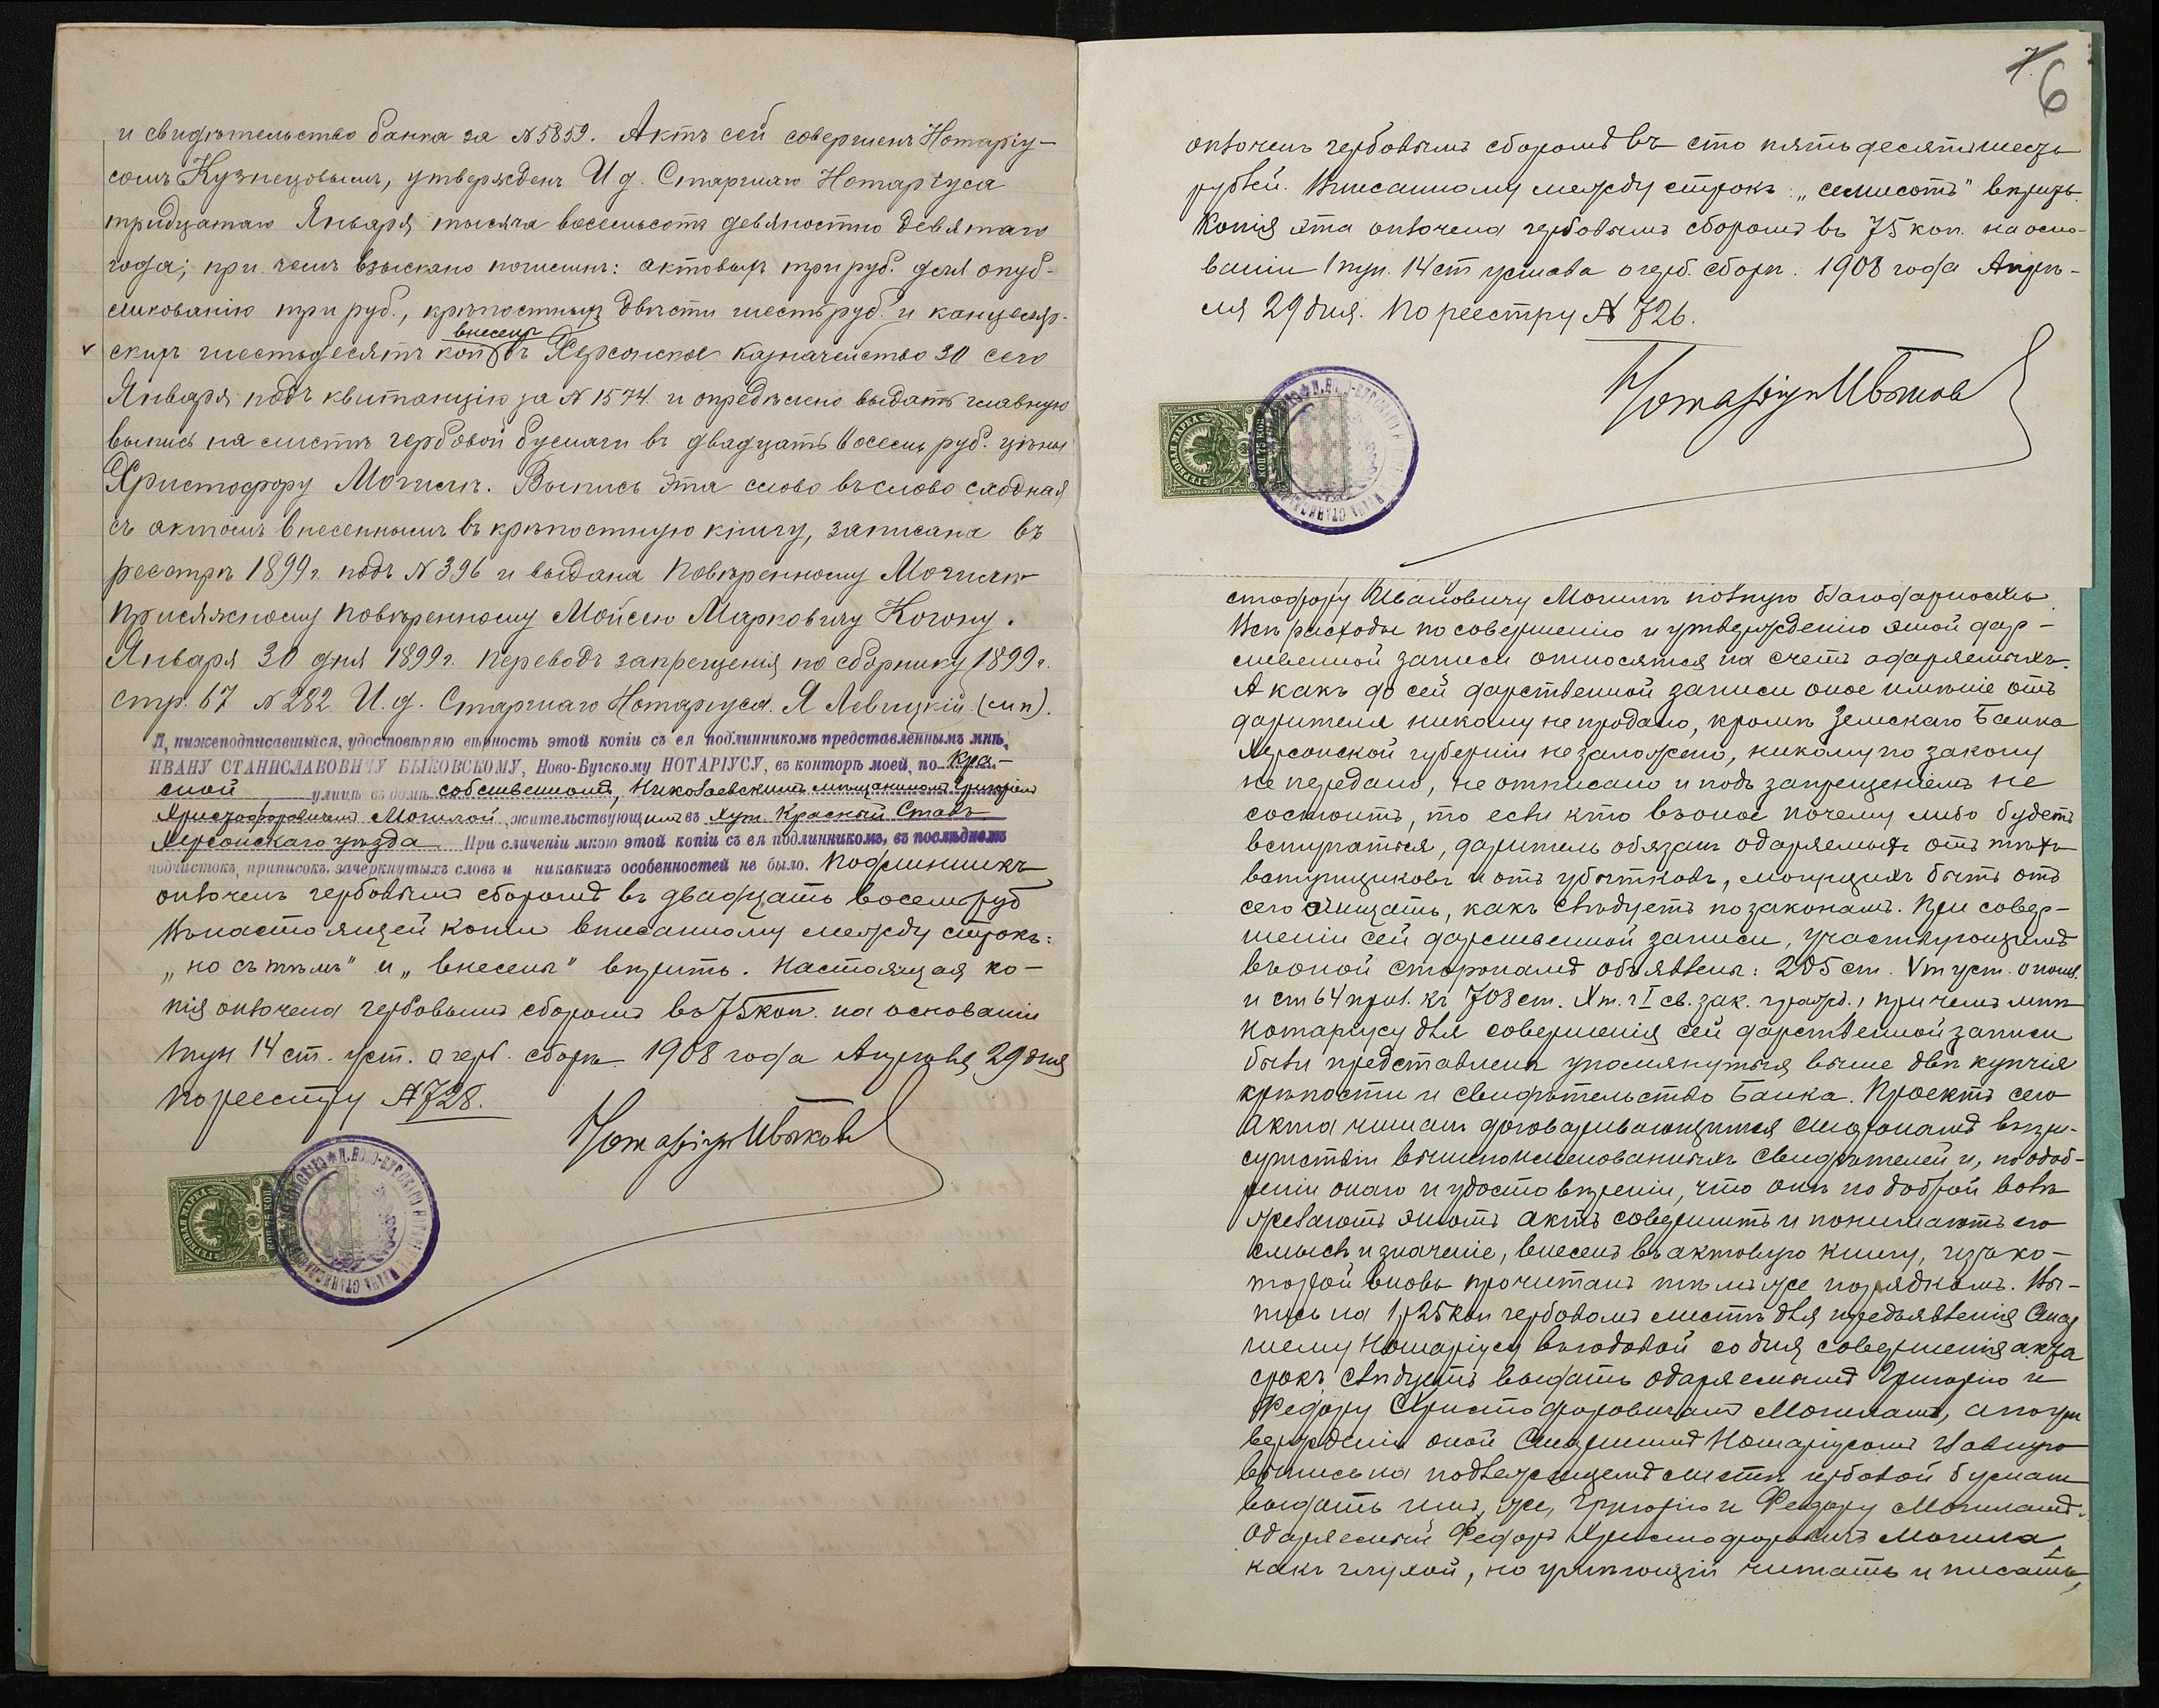 и свидѣтельство банка за № 5859. Актъ сей совершенъ Нотаріу-
сомъ Кузнецовымъ, утвержденъ И д. Старшаго Нотаріуса
тридцатаго Января тысяча восемьсотъ девяносто девятаго
года; при чемъ взыскано пошлинъ: актовыхъ три руб. для опуб-
ликованію три руб., крѣпостныхъ двѣсти шесть руб. и канцеляр-
внесены
скихъ шестьдесятъ коп. въ Херсонское казначейство 30 сего
Января подъ квитанцію за № 1574. и опредѣлено выдать главную
выпись на листѣ гербовой бумаги въ двадцать восемь руб. цѣны
Христофору Могилѣ. Выпись эта слово въ слово сходная
съ актомъ внесеннымъ въ крѣпостную книгу, записана въ
реестрѣ 1899 г. подъ № 396 и выдана Повѣренному Могилы
Присяжному Повѣренному Мойсею Марковичу Когону.
Января 30 дня 1899 г. Переводъ запрещенія по сборнику 1899 г.
стр. 67 № 282 И. д. Старшаго Нотаріуса. Я Левицкій. (м п).
Я, нижеподписавшійся, удостовѣряю вѣрность этой копіи съ ея подлинникомъ представленнымъ мнѣ,
ИВАНУ СТАНИСЛАВОВИЧУ БЫКОВСКОМУ, Ново-Бугскому НОТАРІУСУ, въ конторѣ моей, по Кра-
сной улицѣ въ домѣ собственномъ, Николаевскимъ мѣщаниномъ Григоріемъ
Христофоровичемъ Могилой, жительствующимъ въ хут. Красный Ставъ
Херсонскаго уѣзда. При сличеніи мною этой копіи съ ея подлинникомъ, въ послѣднемъ
подчистокъ, приписокъ, зачеркнутыхъ словъ и никакихъ особенностей не было. Подлинникъ
оплоченъ гербовымъ сборомъ въ двадцать восемь руб
Въ настоящей копіи вписанному между строкъ:
„но съ тѣмъ" и „внесены" вѣрить. Настоящая ко-
пія оплочена гербовымъ сборомъ въ 75 коп. на основаніи
1 пун 14 ст. уст. о герб. сборѣ 1908 года Апрѣля 29 дня
По реестру № 728.
Нотаріусъ
7 6
оплоченъ гербовымъ сборомъ въ сто пятьдесятъ шесть
рублей. Вписанному между строкъ: „семисотъ" вѣрить.
Копія эта оплочена гербовымъ сборомъ въ 75 коп. на осно-
ваніи 1 пун. 14 ст устава о герб. сборѣ. 1908 года Апрѣ-
ля 29 дня. По реестру № 726.
Нотаріусъ
стофору Ивановичу Могилѣ полную благодарность.
Всѣ расходы по совершенію и утвержденію этой дар-
ственной записи относятся на счетъ одаряемыхъ.
А какъ до сей дарственной записи оное имѣніе отъ
дарителя никому не продано, кромѣ Земскаго Банка
Херсонской губерніи не заложено, никому по закону
не передано, не отписано и подъ запрещеніемъ не
состоитъ, то если кто въ оное почему либо будетъ
вступаться, даритель обязанъ одаряемыхъ отъ тѣхъ
вступщиковъ и отъ убытковъ, могущихъ быть отъ
сего очищать, какъ слѣдуетъ по законамъ. При совер-
шеніи сей дарственной записи, участвующимъ
въ оной сторонамъ объявлены: 205 ст. V т уст. о пошл.
и ст 64 прил. къ 708 ст. X т. ч I св. зак. гражд., при чемъ мнѣ
Нотаріусу для совершенія сей дарственной записи
были представлены упомянутыя выше двѣ купчія
крѣпости и свидѣтельство Банка. Проектъ сего
Акта читанъ договаривающимся сторонамъ въ при-
сутствіи вышепоименованныхъ свидѣтелей и, по одоб-
реніи онаго и удостовѣреніи, что они по доброй волѣ
желаютъ этотъ актъ совершить и понимаютъ его
смыслъ и значеніе, внесенъ въ актовую книгу, изъ ко-
торой вновь прочитанъ тѣмъ же порядкомъ. Вы-
пись на 1 р 25 коп гербовомъ листѣ для предъявленія Стар
шему Нотаріусу въ годовой со дня совершенія акта
срокъ слѣдуетъ выдать одаряемымъ Григорію и
Федору Христофоровичамъ Могиламъ, а по ут
вержденіи оной Старшимъ Нотаріусомъ главную
выпись на подлежащемъ листѣ гербовой бумаги
выдать имъ, же, Григорію и Федору Могиламъ.
Одаряемый Федоръ Христофоровичъ Могила,
какъ глухой, но умѣющій читать и писать,